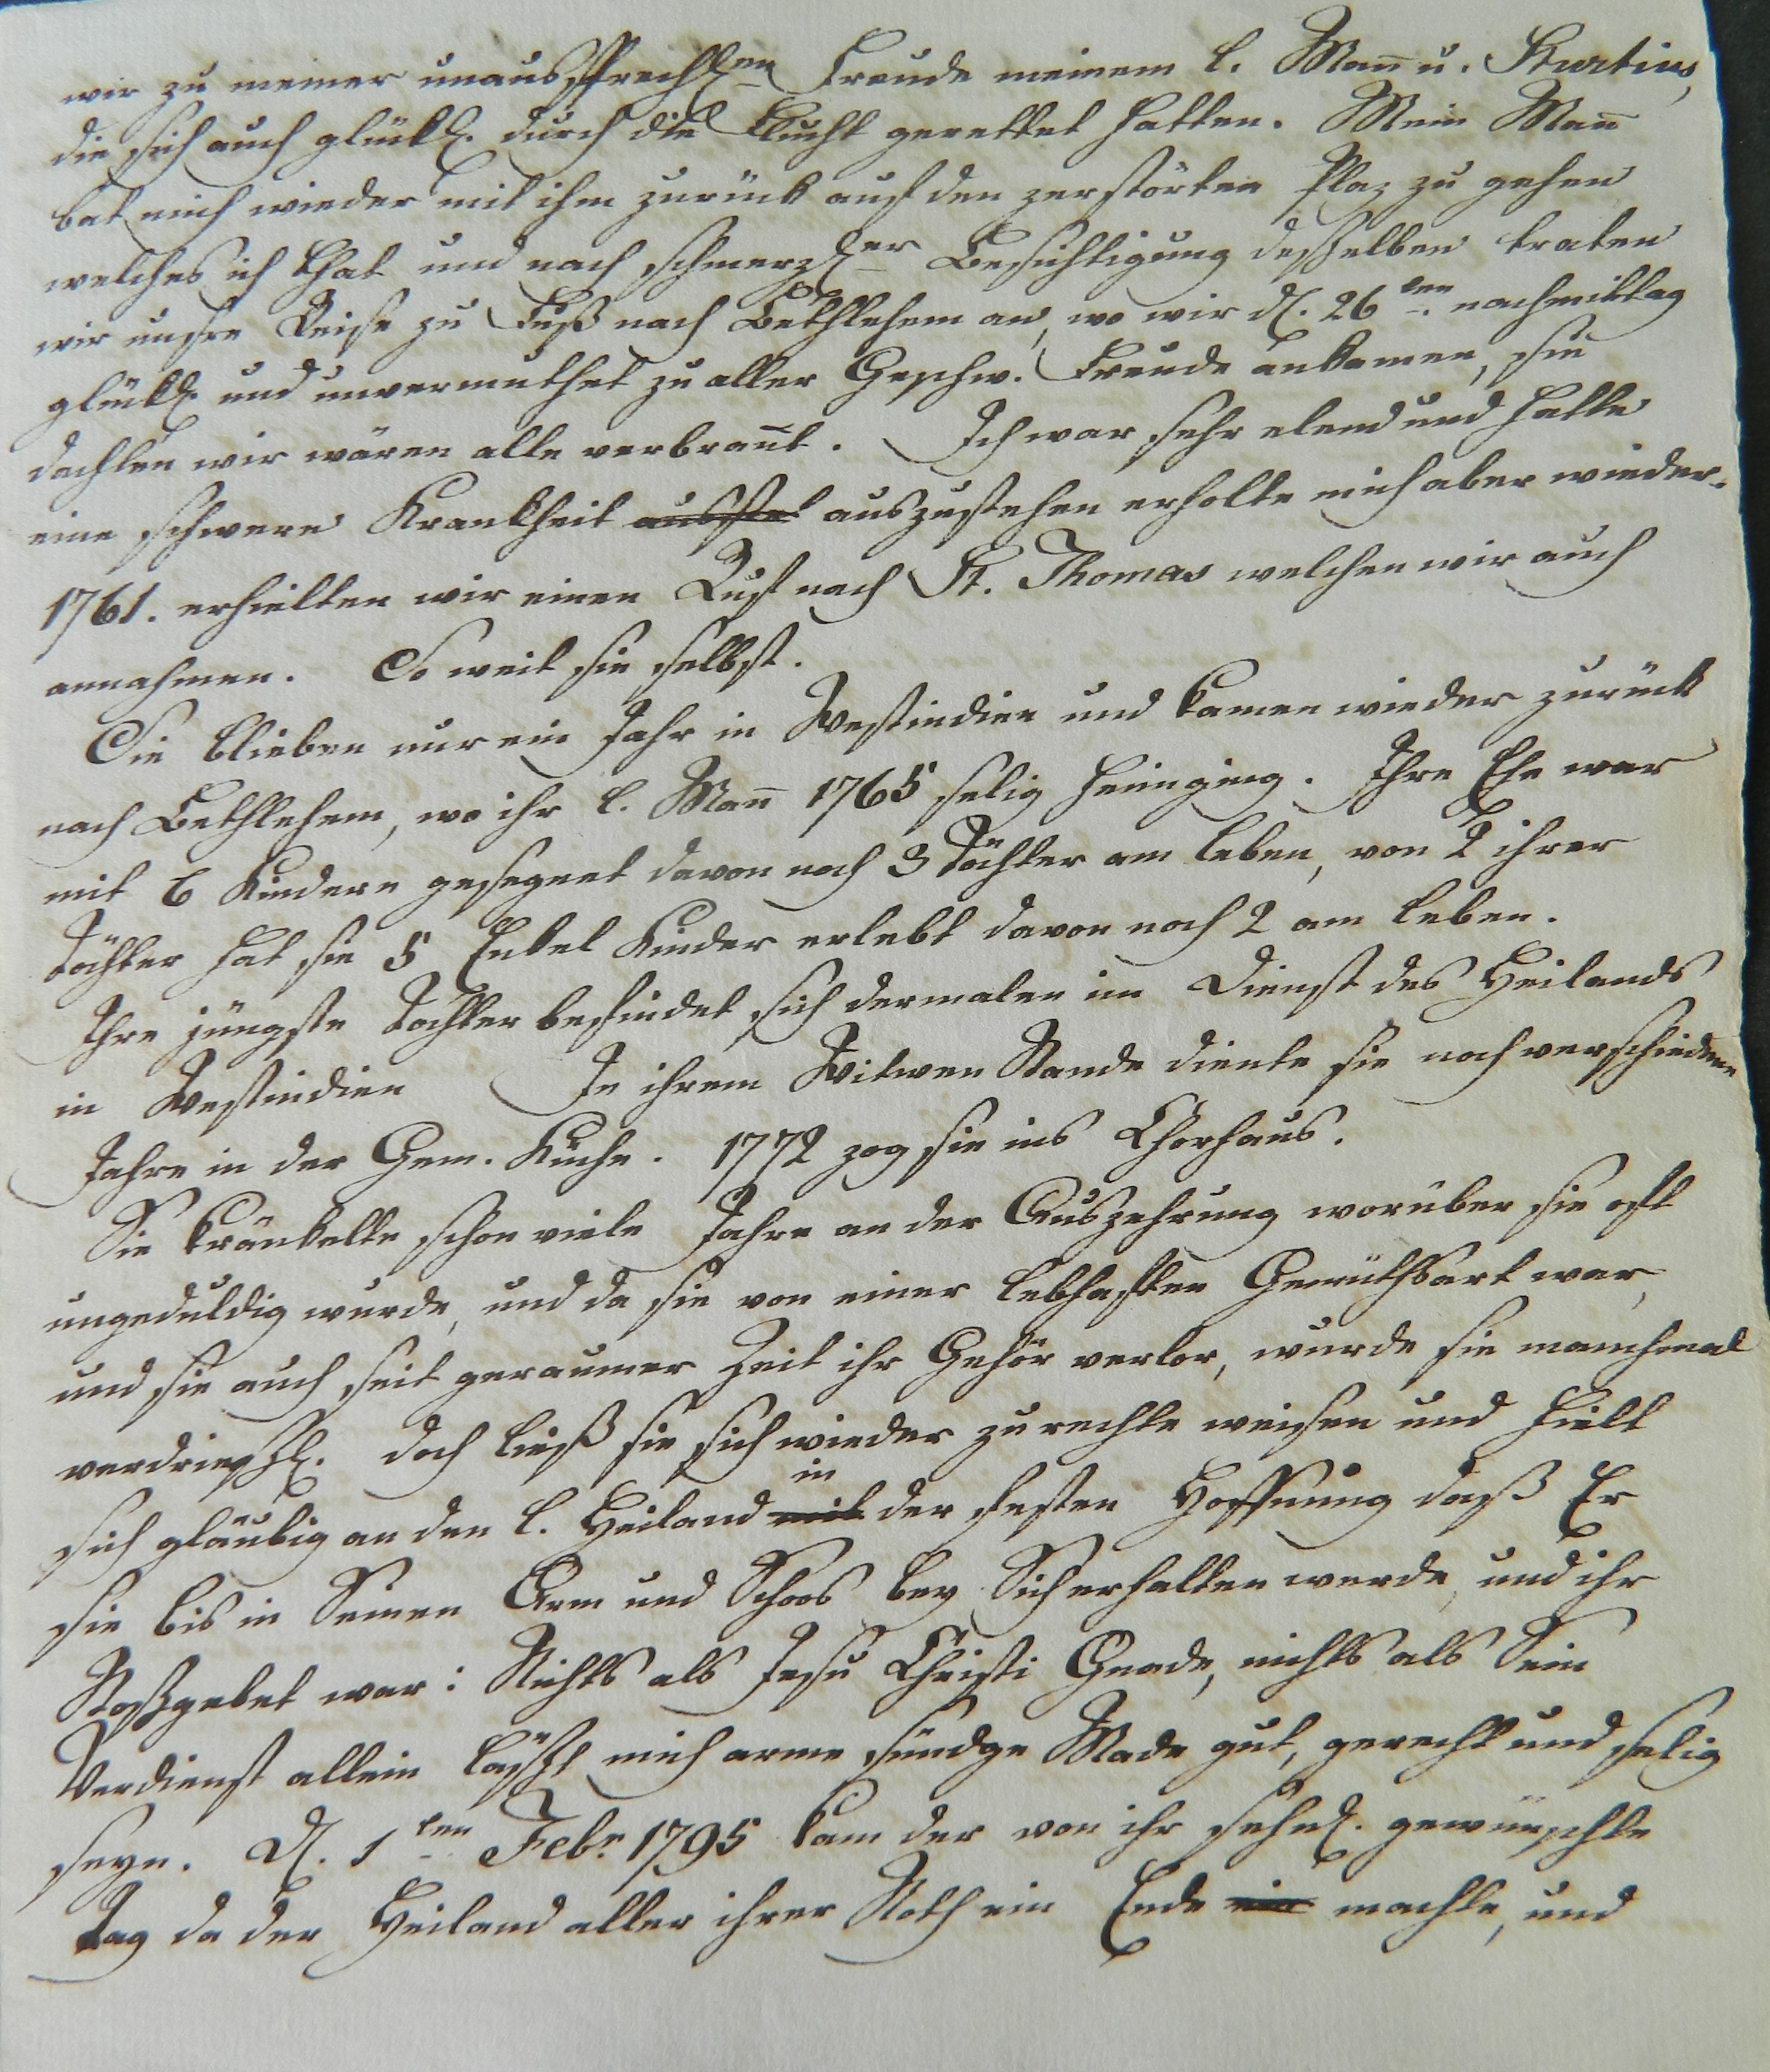 wir zu meiner unaussprechl.en Freude meinem l. Man̄ u. Sturtius,
die sich auch glükl. durch die Flucht gerettet hatten. Mein Man̄
bat mich wieder mit ihm zurück auf den zerstörten Plaz zu gehen
welches ich that und nach schmerzl.er Besichtigung desselben traten
wir unsre Reise zu Fuß nach Bethlehem an, wo wir d. 26ten. nachmittag
glükl. und unvermuthet zu aller Geschw. Freude ankamen, sie
dachten wir wären alle verbran̄t. Ich war sehr elend und hatte
eine schwere Krankheit auszustehen erholte mich aber wieder.
1761. erhielten wir einen Ruf nach St. Thomas welchen wir auch
annahmen. So weit sie selbst.
Sie blieben nur ein Jahr in Westindien und kamen wieder zurück
nach Bethlehem, wo ihr l. Man̄ 1765 selig heimging. Ihre Ehe war
mit 6 Kindern gesegnet davon noch 3 Töchter am Leben, von 2 ihrer
Töchter hat sie 5 Enkel Kinder erlebt davon noch 2 am Leben.
Ihre jüngste Tochter befindet sich dermalen im Dienst des Heilands
in Westindien In ihrem Witwen Stande diente sie noch verschiedene
Jahre in der Gem. Küche. 1772 zog sie ins Chorhaus.
Sie kränkelte schon viele Jahre an der Auszehrung worüber sie oft
ungeduldig wurde, und da sie von einer lebhaften Gemüthsart war,
und sie auch seit geraumer Zeit ihr Gehör verlor, wurde sie manchmal
verdrieszl. doch ließ sie sich wieder zu rechte weisen und hielt
sich gläubig an den l. Heiland in mit der festen Hoffnung daß Er
sie bis in Seinen Arm und Schoos bey Sich erhalten werde, und ihr
Stoßgebet war: Nichts als Jesu Christi Gnade, nichts als Sein
Verdienst allein läßt mich arme sündge Made gut, gerecht und selig
seyn. D. 1ten Febr 1795 kam der von ihr sehnl. gewünschte
Tag da der Heiland aller ihrer Noth ein Ende machte, und